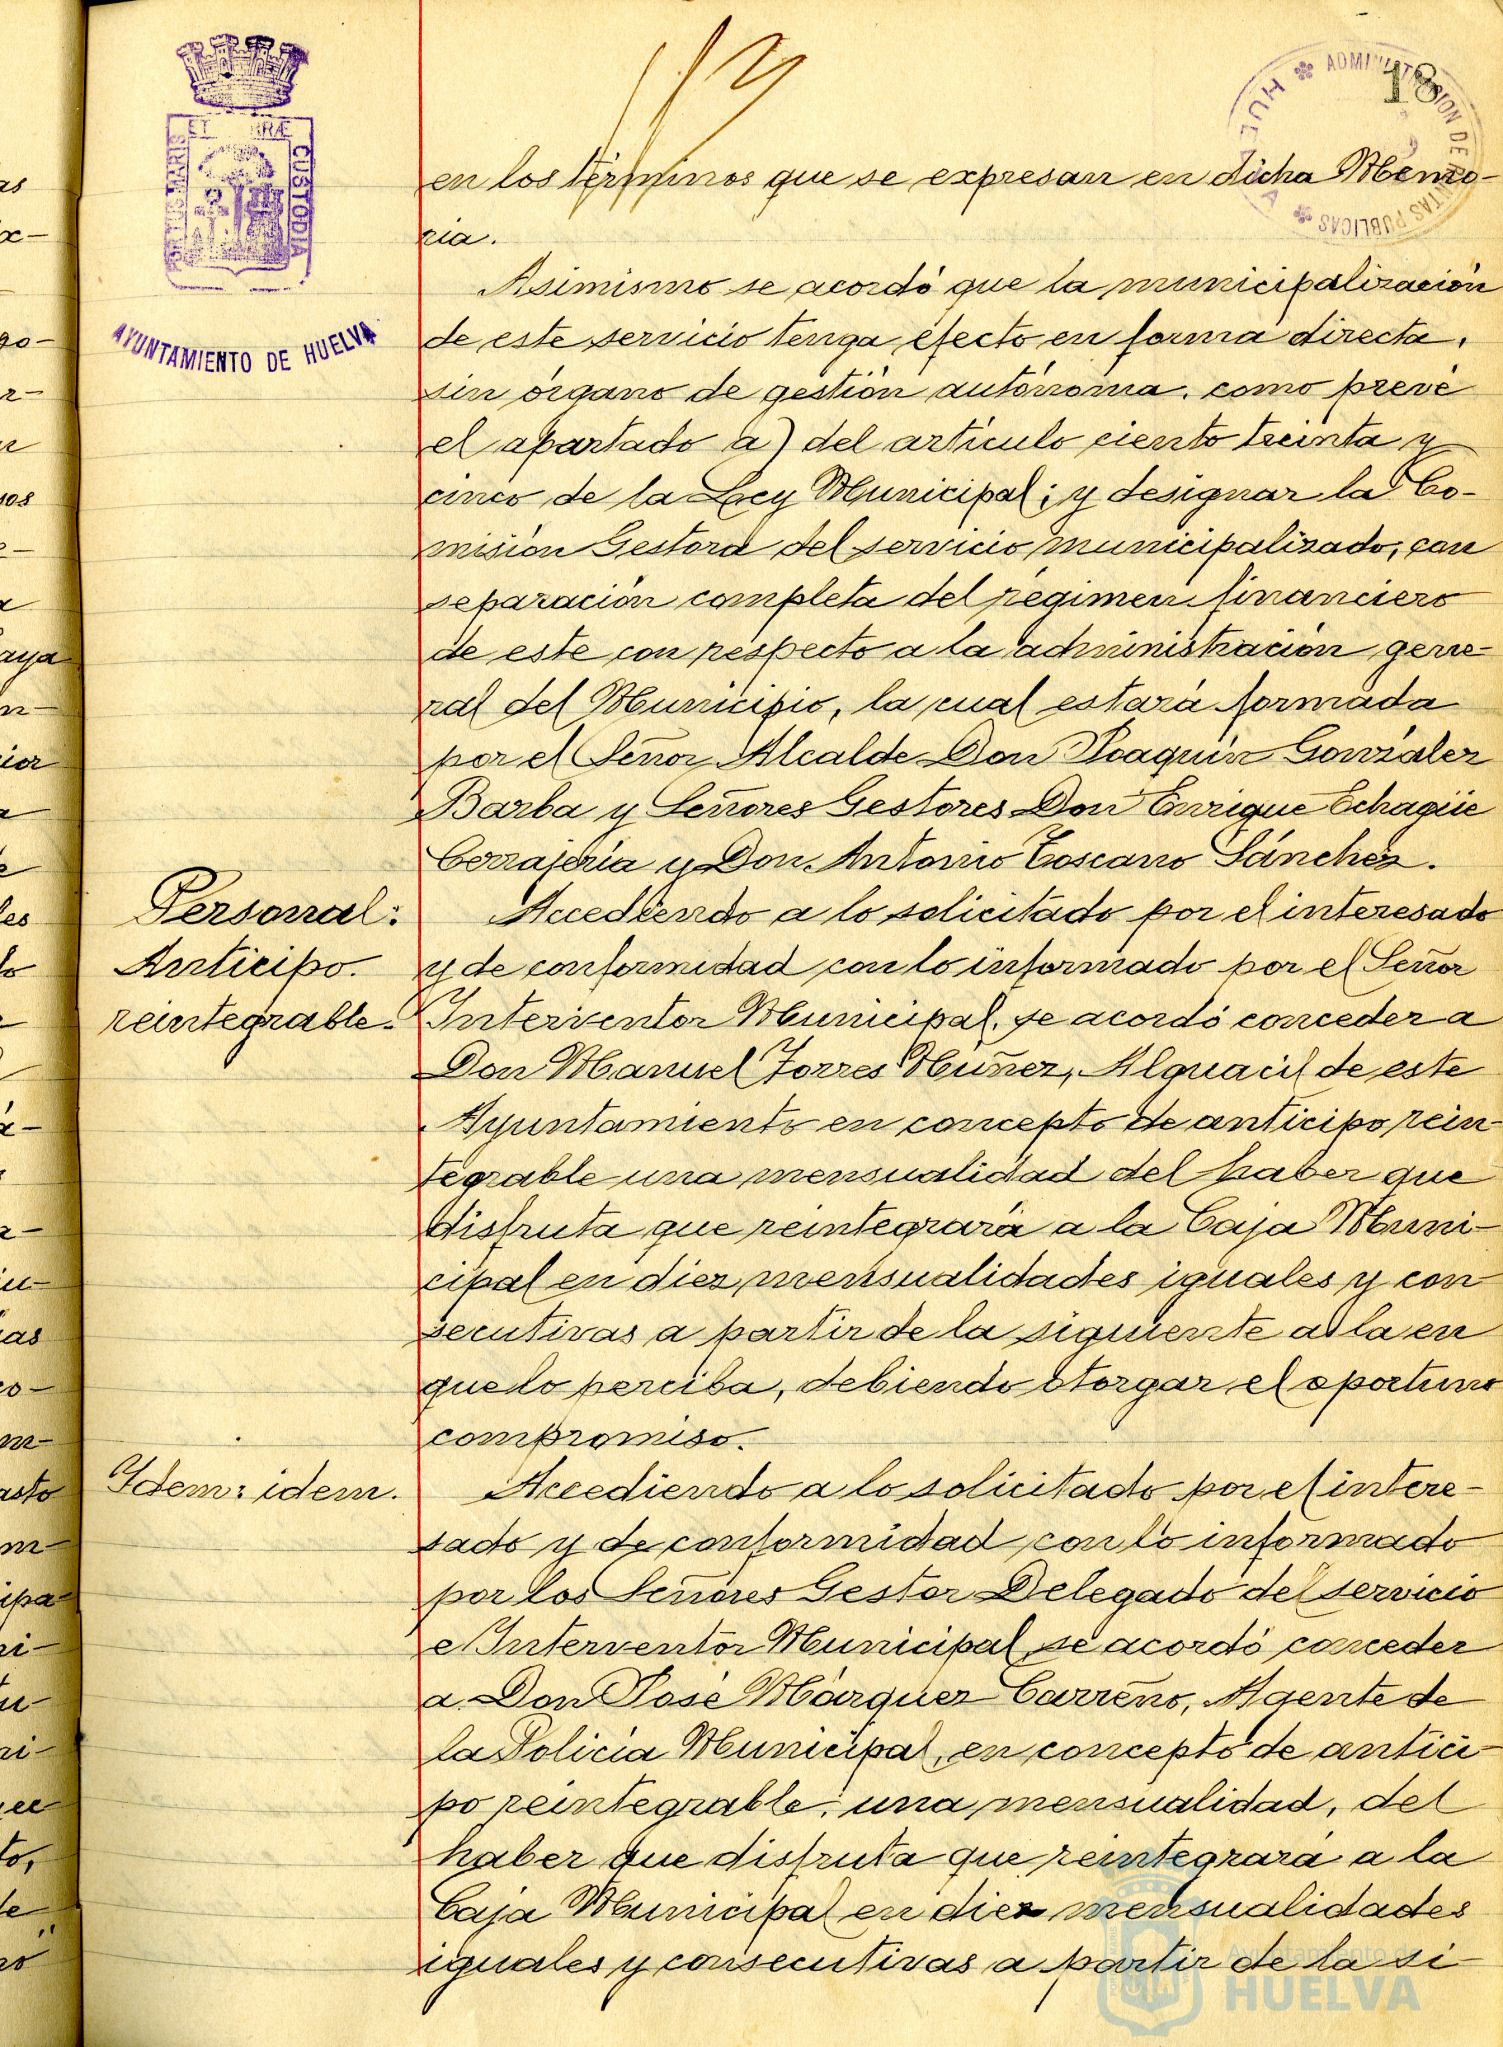 18
ADMINISTRACION DE RENTAS PUBLICAS
HUELVA
PORTUS MARIS ET TERRÆ CUSTODIA
AYUNTAMIENTO DE HUELVA
en los términos que se expresan en dicha Memo-
ria.
Asimismo se acordó que la municipalización
de este servicio tenga efecto en forma directa,
sin órgano de gestión autónoma, como prevé
el apartado a) del artículo ciento treinta y
cinco de la Ley Municipal; y designar la Co-
misión Gestora del servicio municipalizado, con
separación completa del régimen financiero
de este con respecto a la administración gene-
ral del Municipio, la cual estará formada
por el Señor Alcalde Don Joaquín González
Barba y Señores Gestores Don Enrique Echagüe
Cerrajería y Don Antonio Toscano Sánchez.
Personal:
Anticipo
reintegrable.
Accediendo a lo solicitado por el interesado
y de conformidad con lo informado por el Señor
Interventor Municipal, se acordó conceder a
Don Manuel Torres Núñez, Alguacil de este
Ayuntamiento en concepto de anticipo rein-
tegrable una mensualidad del haber que
disfruta que reintegrará a la Caja Muni-
cipal en diez mensualidades iguales y con
secutivas a partir de la siguiente a la en
que lo perciba, debiendo otorgar el oportuno
compromiso.
Idem: idem.
Accediendo a lo solicitado por el intere-
sado y de conformidad con lo informado
por los Señores Gestor Delegado del servicio
e Interventor Municipal, se acordó conceder
a Don José Márquez Carreño, Agente de
la Policía Municipal, en concepto de antici-
po reintegrable, una mensualidad, del
haber que disfruta que reintegrará a la
Caja Municipal en diez mensualidades
iguales y consecutivas a partir de la si-
Ayuntamiento de
HUELVA